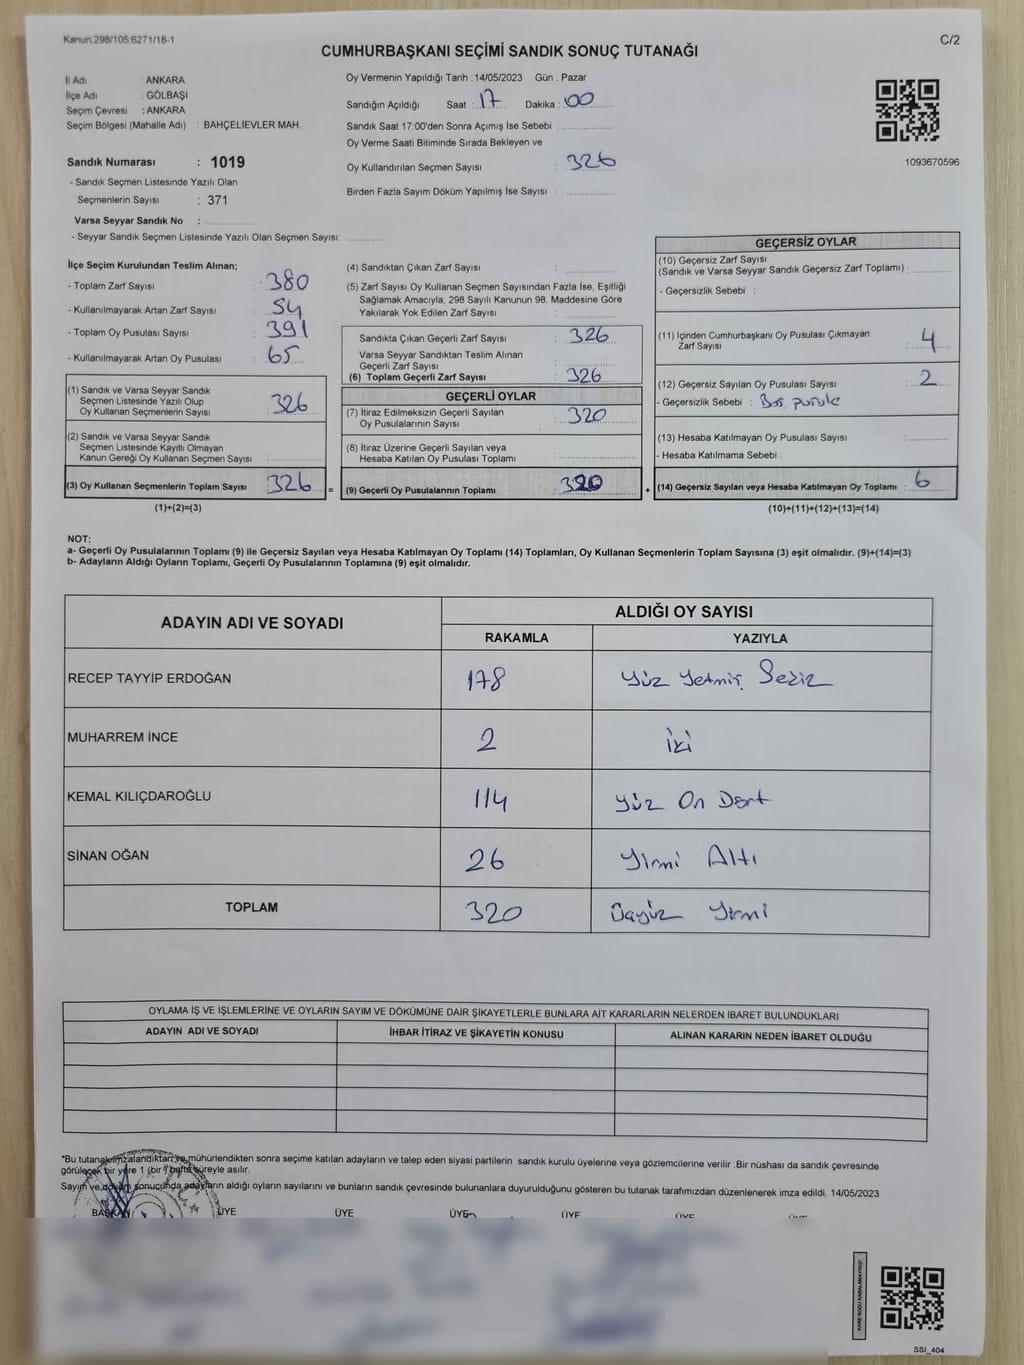 Kanun:298/105;6271/18-1
C/2
CUMHURBAŞKANI SEÇİMİ SANDIK SONUÇ TUTANAĞI
İl Adı : ANKARA
İlçe Adı : GÖLBAŞI
Seçim Çevresi : ANKARA
Seçim Bölgesi (Mahalle Adı) : BAHÇELİEVLER MAH.
Sandık Numarası : 1019
- Sandık Seçmen Listesinde Yazılı Olan
Seçmenlerin Sayısı : 371
Varsa Seyyar Sandık No :
- Seyyar Sandık Seçmen Listesinde Yazılı Olan Seçmen Sayısı:
Oy Vermenin Yapıldığı Tarih : 14/05/2023 Gün : Pazar
Sandığın Açıldığı Saat : 17 Dakika : 00
Sandık Saat 17:00'den Sonra Açımış İse Sebebi :
Oy Verme Saati Bitiminde Sırada Bekleyen ve
Oy Kullandırılan Seçmen Sayısı : 326
Birden Fazla Sayım Döküm Yapılmış İse Sayısı :
1093670596
İlçe Seçim Kurulundan Teslim Alınan;
- Toplam Zarf Sayısı : 380
- Kullanılmayarak Artan Zarf Sayısı : 54
- Toplam Oy Pusulası Sayısı : 391
- Kullanılmayarak Artan Oy Pusulası : 65
(1) Sandık ve Varsa Seyyar Sandık
Seçmen Listesinde Yazılı Olup
Oy Kullanan Seçmenlerin Sayısı : 326
(2) Sandık ve Varsa Seyyar Sandık
Seçmen Listesinde Kayıtlı Olmayan
Kanun Gereği Oy Kullanan Seçmen Sayısı :
(3) Oy Kullanan Seçmenlerin Toplam Sayısı : 326
(1)+(2)=(3)
(4) Sandıktan Çıkan Zarf Sayısı :
(5) Zarf Sayısı Oy Kullanan Seçmen Sayısından Fazla İse, Eşitliği
Sağlamak Amacıyla; 298 Sayılı Kanunun 98. Maddesine Göre
Yakılarak Yok Edilen Zarf Sayısı :
Sandıkta Çıkan Geçerli Zarf Sayısı : 326
Varsa Seyyar Sandıktan Teslim Alınan
Geçerli Zarf Sayısı :
(6) Toplam Geçerli Zarf Sayısı : 326
GEÇERLİ OYLAR
(7) İtiraz Edilmeksizin Geçerli Sayılan
Oy Pusulalarının Sayısı : 320
(8) İtiraz Üzerine Geçerli Sayılan veya
Hesaba Katılan Oy Pusulası Toplamı :
= (9) Geçerli Oy Pusulalarının Toplamı : 320
GEÇERSİZ OYLAR
(10) Geçersiz Zarf Sayısı
(Sandık ve Varsa Seyyar Sandık Geçersiz Zarf Toplamı) :
- Geçersizlik Sebebi :
(11) İçinden Cumhurbaşkanı Oy Pusulası Çıkmayan
Zarf Sayısı : 4
(12) Geçersiz Sayılan Oy Pusulası Sayısı : 2
- Geçersizlik Sebebi : Boş pusula
(13) Hesaba Katılmayan Oy Pusulası Sayısı :
- Hesaba Katılmama Sebebi :
+ (14) Geçersiz Sayılan veya Hesaba Katılmayan Oy Toplamı : 6
(10)+(11)+(12)+(13)=(14)
NOT:
a- Geçerli Oy Pusulalarının Toplamı (9) ile Geçersiz Sayılan veya Hesaba Katılmayan Oy Toplamı (14) Toplamları, Oy Kullanan Seçmenlerin Toplam Sayısına (3) eşit olmalıdır. (9)+(14)=(3)
b- Adayların Aldığı Oyların Toplamı, Geçerli Oy Pusulalarının Toplamına (9) eşit olmalıdır.
ADAYIN ADI VE SOYADI
ALDIĞI OY SAYISI
RAKAMLA YAZIYLA
RECEP TAYYİP ERDOĞAN 178 Yüz Yetmiş Sekiz
MUHARREM İNCE 2 İki
KEMAL KILIÇDAROĞLU 114 Yüz On Dört
SİNAN OĞAN 26 Yirmi Altı
TOPLAM 320 Üçyüz Yirmi
OYLAMA İŞ VE İŞLEMLERİNE VE OYLARIN SAYIM VE DÖKÜMÜNE DAİR ŞİKAYETLERLE BUNLARA AİT KARARLARIN NELERDEN İBARET BULUNDUKLARI
ADAYIN ADI VE SOYADI İHBAR İTİRAZ VE ŞİKAYETİN KONUSU ALINAN KARARIN NEDEN İBARET OLDUĞU
*Bu tutanak imzalandıktan ve mühürlendikten sonra seçime katılan adayların ve talep eden siyasi partilerin sandık kurulu üyelerine veya gözlemcilerine verilir .Bir nüshası da sandık çevresinde
görülecek bir yere 1 (bir ) hafta süreyle asılır.
Sayım ve döküm sonucunda adayların aldığı oyların sayılarını ve bunların sandık çevresinde bulunanlara duyurulduğunu gösteren bu tutanak tarafımızdan düzenlenerek imza edildi. 14/05/2023
BAŞKAN ÜYE ÜYE ÜYE ÜYE ÜYE ÜYE
SSI_404